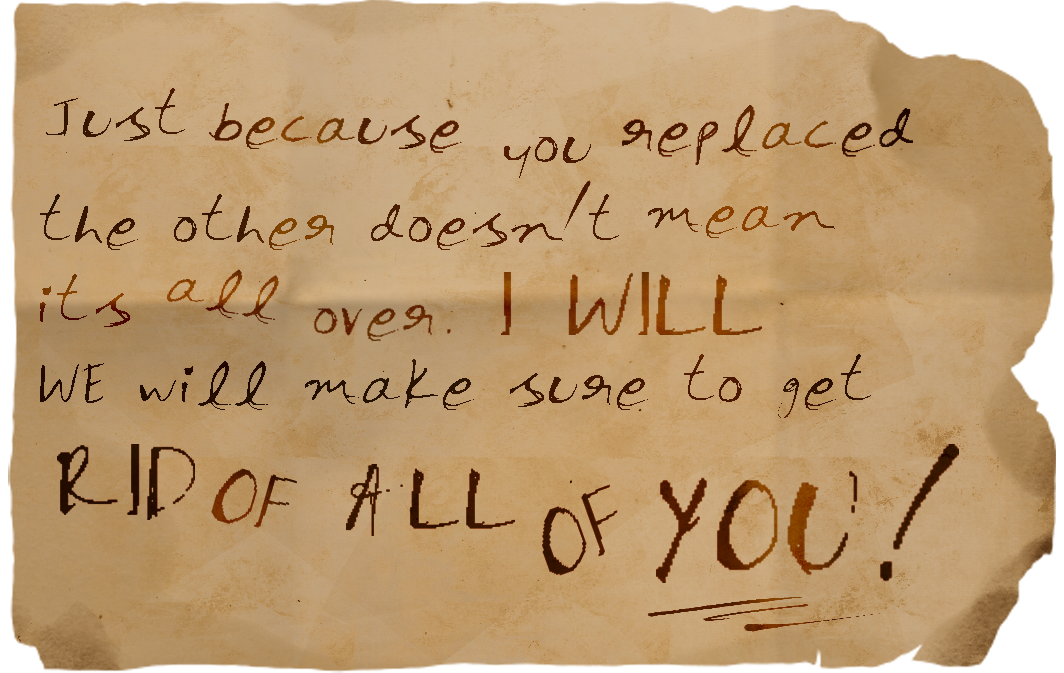 Just because you replaced
the other doesn't mean
its all over. I WILL
WE will make sure to get
RID OF ALL OF YOU!